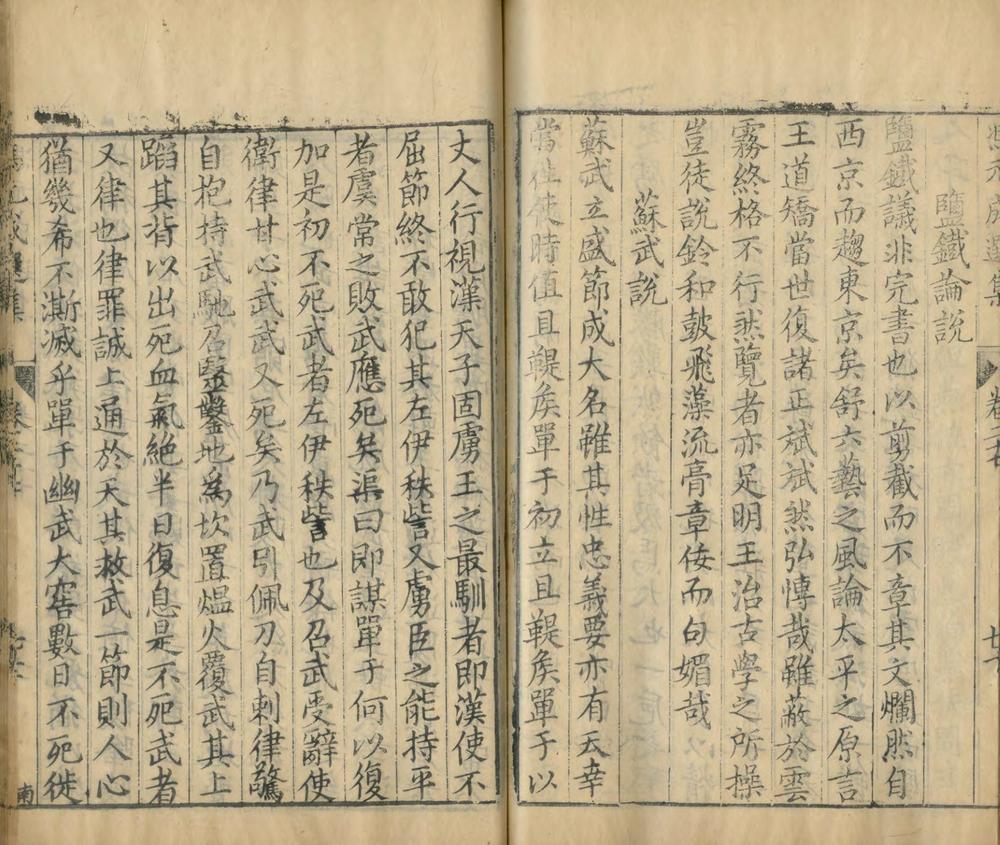 鹽鐵論說
鹽鐵議非完書也以剪截而不章其文爛然自
西京而趨東京矣舒六藝之風論太平之原言
王道矯當世復諸正斌斌然弘愽哉雖蔽於雲
霧終格不行然覽者亦足明王治古學之所操
豈徒說鈴和皷飛藻流膏章佞而句媚哉
蘇武說
蘇武立盛節成大名雖其性忠義要亦有天幸
當往使時值且鞮矦單于初立且鞮矦單于以
丈人行視漢天子固虜王之最馴者即漢使不
屈節終不敢犯其左伊秩訾又虜臣之能持平
者虞常之敗武應死矣渠曰即謀單于何以復
加是初不死武者左伊秩訾也及召武受辭使
衛律甘心武武又死矣乃武引佩刀自刺律驚
自抱持武馳召毉鑿地為坎置煴火覆武其上
蹈其背以出死血氣絕半日復息是不死武者
又律也律罪誠上通於天其救武一節則人心
猶幾希不澌滅乎單于幽武大窖數日不死徙
南